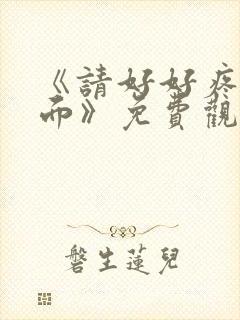 《請好好疼
而》免費觀
磐生蓮兒